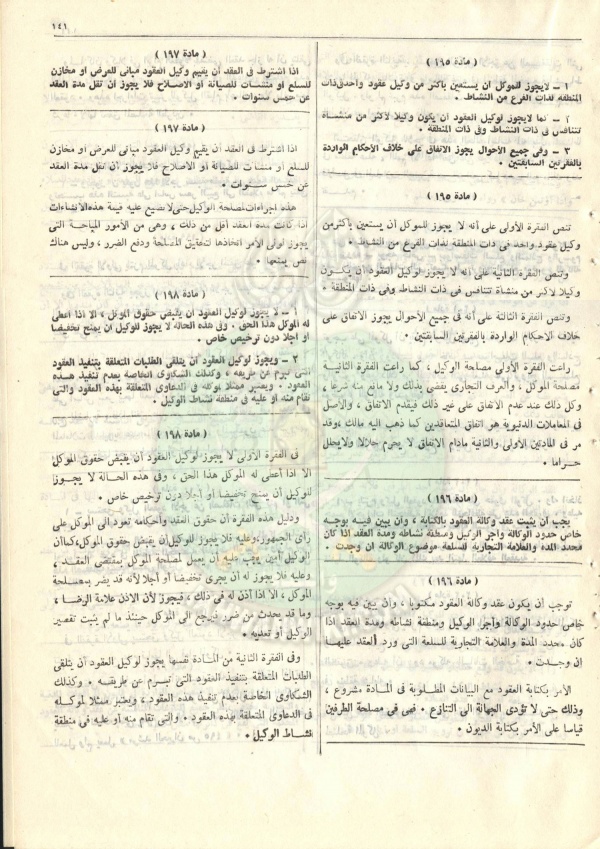 ١٤١
( مادة ١٩٥ )
١ – لايجوز للموكل ان يستعين باكثر من وكيل عقود واحد فى ذات
المنطقة لذات الفرع من النشاط .
٢ – كما لايجوز لوكيل العقود ان يكون وكيلا لاكثر من منشاة
تتنافس فى ذات النشاط وفى ذات المنطقة .
٣ – وفى جميع الأحوال يجوز الاتفاق على خلاف الأحكام الواردة
بالفقرتين السابقتين .
( مادة ١٩٥ )
تنص الفقرة الأولى على أنه لا يجوز للموكل أن يستعين بأكثر من
وكيل عقود واحد فى ذات المنطقة لذات الفرع من النشاط .
وتنص الفقرة الثانية على أنه لا يجوز لوكيل العقود أن يكون
وكيلا لأكثر من منشاة تتنافس فى ذات النشاط وفى ذات المنطقة .
وتنص الفقرة الثالثة على أنه فى جميع الأحوال يجوز الاتفاق على
خلاف الاحكام الواردة بالفقرتين السابقتين .
راعت الفقرة الأولى مصلحة الوكيل ، كما راعت الفقرة الثانية
مصلحة الموكل ، والعرف التجارى يقضى بذلك ولا مانع منه شرعا ،
وكل ذلك عند عدم الاتفاق على غير ذلك فيقدم الاتفاق ، والأصل
فى المعاملات الدنيوية هو اتفاق المتعاقدين كما ذهب اليه مالك ، وقد
مر فى المادتين الأولى والثانية مادام الاتفاق لا يحرم حلالا ولايحلل
حراما .
( مادة ١٩٦ )
يجب أن يثبت عقد وكالة العقود بالكتابة ، وان يبين فيه بوجه
خاص حدود الوكالة واجر الوكيل ومنطقة نشاطه ومدة العقد اذا كان
محدد المدة والعلامة التجارية للسلعة موضوع الوكالة ان وجدت .
( مادة ١٩٦ )
توجب أن يكون عقد وكالة العقود مكتوبا ، وأن يبين فيه بوجه
خاص حدود الوكالة وأجر الوكيل ومنطقة نشاطه ومدة العقد اذا
كان محدد المدة والعلامة التجارية للسلعة التى ورد العقد عليها
ان وجدت .
الأمر بكتابة العقود مع البيانات المطلوبة فى المادة مشروع ،
وذلك حتى لا تؤدى الجهالة الى التنازع . فهى فى مصلحة الطرفين
قياسا على الأمر بكتابة الديون .
( مادة ١٩٧ )
اذا اشترط فى العقد ان يقيم وكيل العقود مبانى للعرض او مخازن
للسلع او منشآت للصيانة او الاصلاح فلا يجوز أن تقل مدة العقد
عن خمس سنوات .
( مادة ١٩٧ )
اذا اشترط فى العقد أن يقيم وكيل العقود مبانى للعرض أو مخازن
للسلع او منشآت للصيانة أو الاصلاح فلا يجوز أن تقل مدة العقد
عن خمس سنوات .
هذه اجراءات لمصلحة الوكيل حتى لا تضيع عليه قيمة هذه الانشاءات
اذا كانت مدة العقد أقل من ذلك ، وهى من الأمور المباحة التى
يجوز لولى الأمر اتخاذها لتحقيق المصلحة ودفع الضرر ، وليس هناك
نص يمنعها .
( مادة ١٩٨ )
١ – لا يجوز لوكيل العقود ان يقبض حقوق الموكل ، الا اذا اعطى
له الموكل هذا الحق . وفى هذه الحالة لا يجوز للوكيل ان يمنح تخفيضا
او اجلا دون ترخيص خاص .
٢ – ويجوز لوكيل العقود أن يتلقى الطلبات المتعلقة بتنفيذ العقود
التى تبرم عن طريقه ، وكذلك الشكاوى الخاصة بعدم تنفيذ هذه
العقود . ويعتبر ممثلا لموكله فى الدعاوى المتعلقة بهذه العقود والتى
تقام منه او عليه فى منطقة نشاط الوكيل .
( مادة ١٩٨ )
فى الفقرة الأولى لا يجوز لوكيل العقود أن يقبض حقوق الموكل
الا اذا أعطى له الموكل هذا الحق ، وفى هذه الحالة لا يجوز
للوكيل أن يمنح تخفيضا أو أجلا دون ترخيص خاص .
ودليل هذه الفقرة أن حقوق العقد وأحكامه تعود الى الموكل على
رأى الجمهور، وعليه فلا يجوز للوكيل أن يقبض حقوق الموكل، كما أن
الوكيل أمين يجب عليه أن يعمل لمصلحة الموكل بمقتضى العقد ،
وعليه فلا يجوز له أن يجرى تخفيضا أو أجلا لأنه قد يضر بمصلحة
الموكل ، الا اذا أذن له فى ذلك ، فيجوز لأن الاذن علامة الرضا ،
وما قد يحدث من ضرر فيرجع الى الموكل حينئذ ما لم يثبت تقصير
الوكيل أو تعديه .
وفى الفقرة الثانية من المادة نفسها يجوز لوكيل العقود أن يتلقى
الطلبات المتعلقة بتنفيذ العقود التى تبرم عن طريقه . وكذلك
الشكاوى الخاصة بعدم تنفيذ هذه العقود ، ويعتبر ممثلا لموكله
فى الدعاوى المتعلقة بهذه العقود . والتى تقام منه أو عليه فى منطقة
نشاط الوكيل .